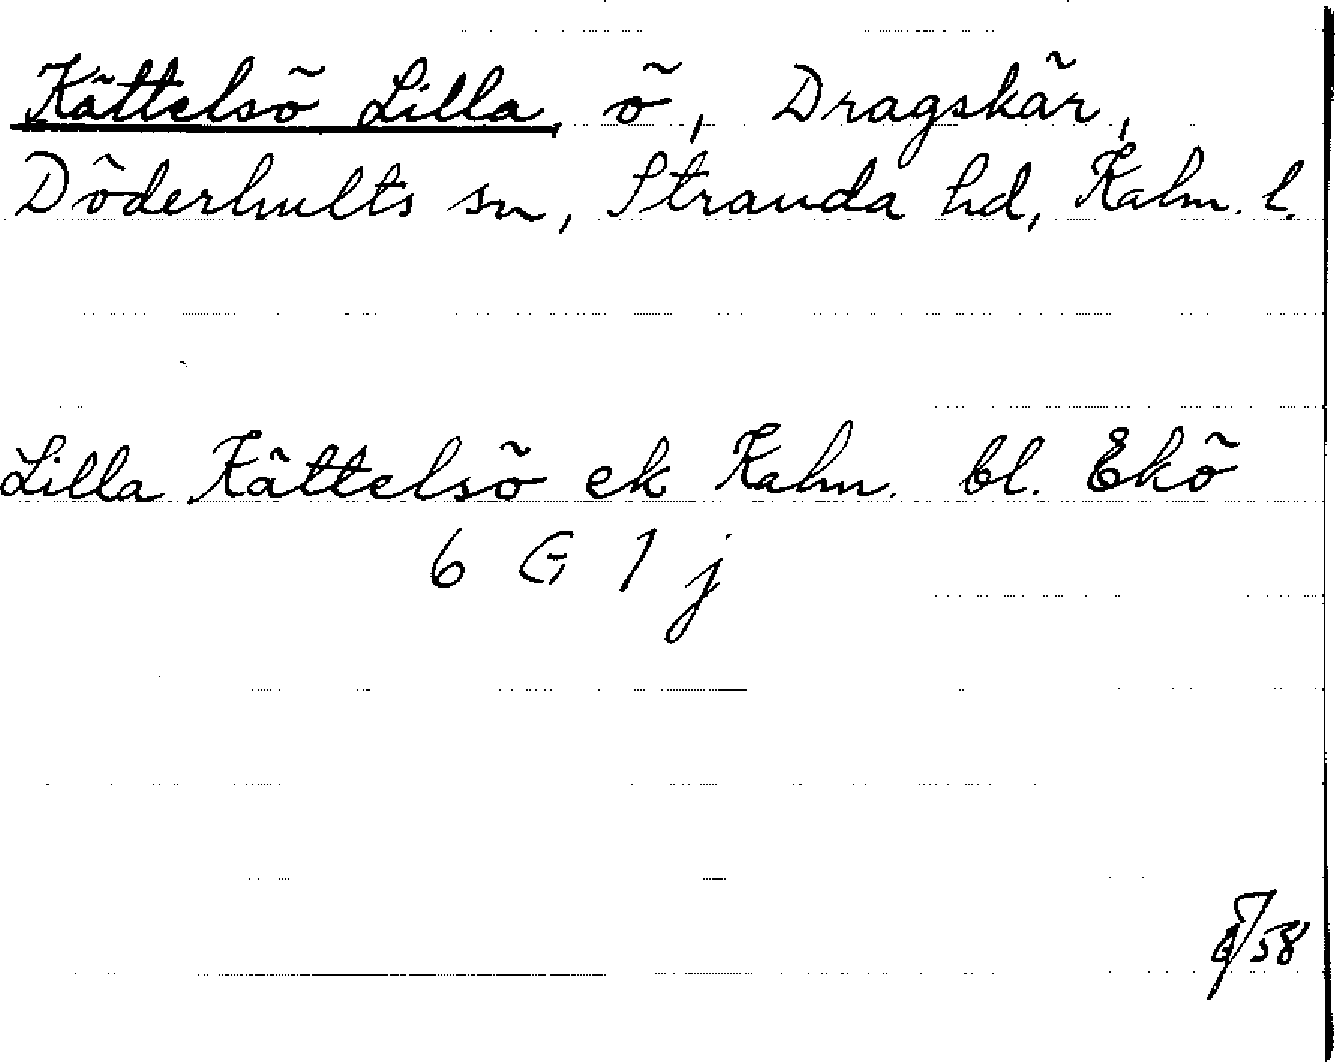 Kättelsö Lilla, ö, Dragskär,
Döderhults sn, Stranda hd, Kalm. l.
Lilla Kättelsö ek Kalm. bl. Ekö
6 G 1 j
58